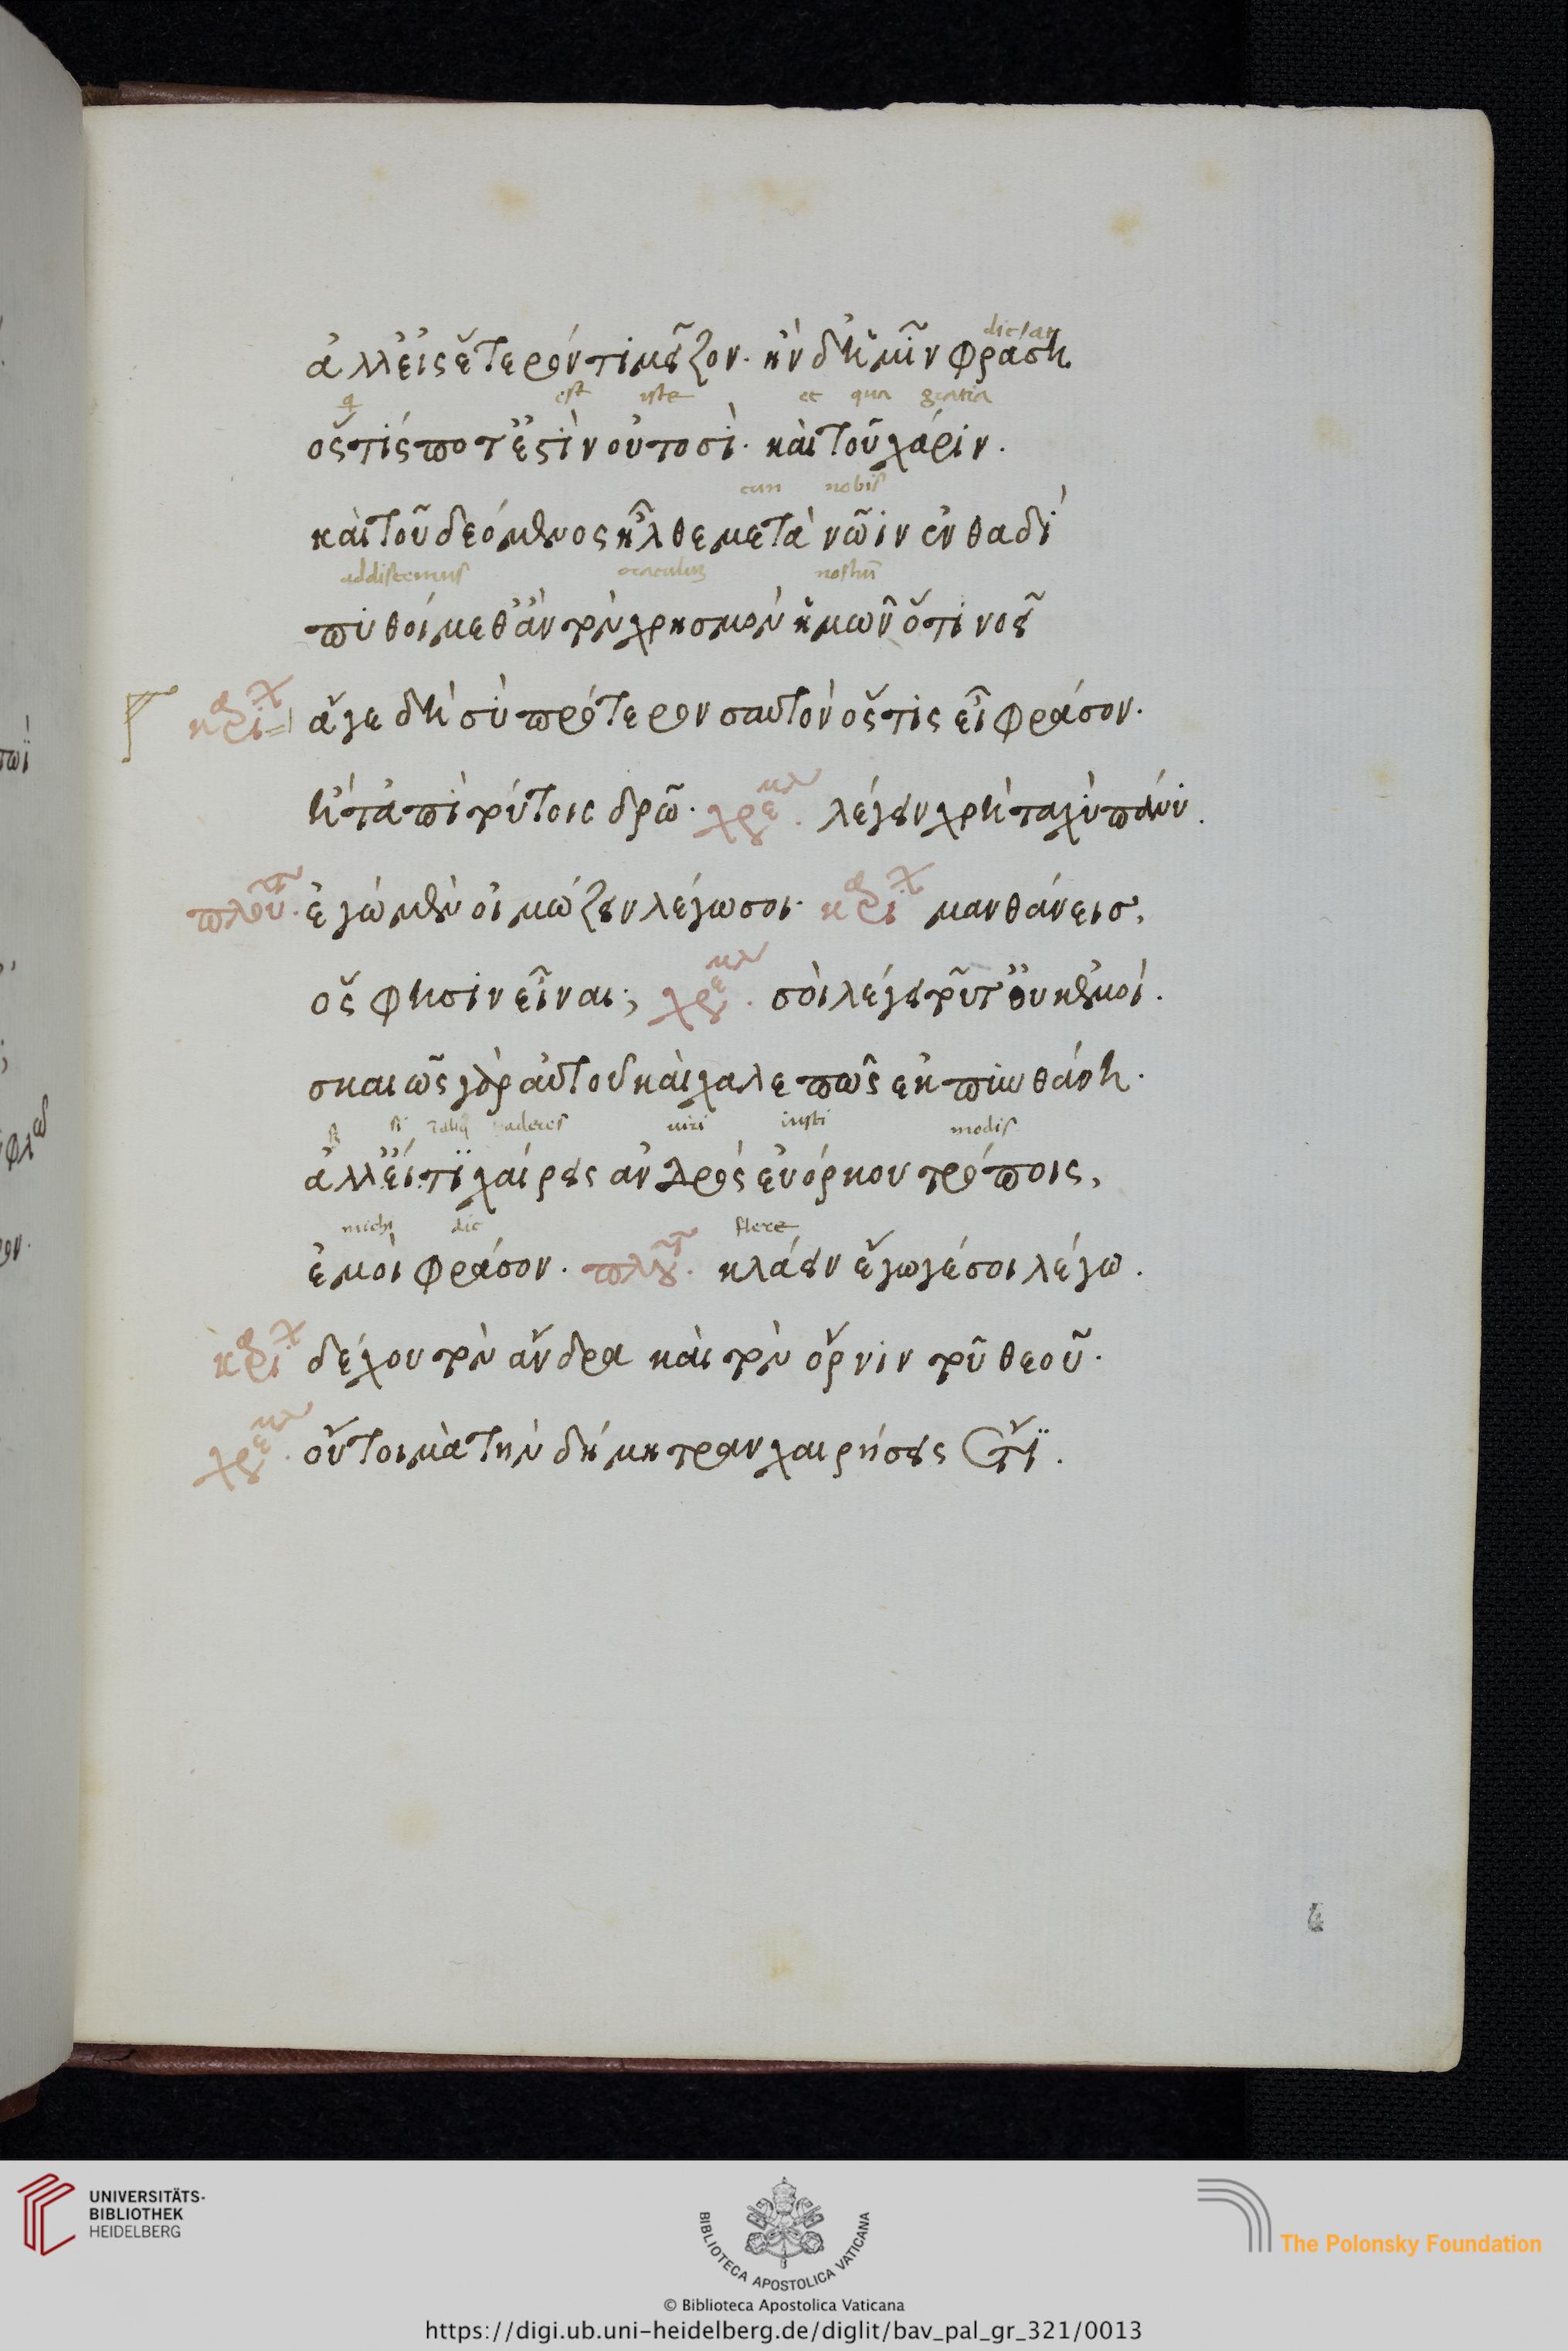 dictar
ἀλλ' εἰς ἕτερόν τι μεῖζον. ἢν δ' ἡμῖν φράσῃ
q est iste et qua gratia
ὅςτίς ποτ' ἐστὶν οὑτοσὶ. καὶ τοῦ χάριν.
cum nobis
καὶ τοῦ δεόμενος ἦλθε μετὰ νῶιν ἐνθαδὶ
addiscemus oraculum nostrum
πυθοίμεθ' ἂν τὸν χρησμὸν ἡμῶν ὅτι νοεῖ
καρίχ ἄγε δὴ σὺ πρότερον σαυτὸν ὅςτις εἶ φράσον.
ἢ τἀπὶ τούτοις δρῶ. χρεμυλ. λέγειν χρὴ ταχὺ πάνυ.
πλοῦτ. ἐγὼ μὲν οἰμώζειν λέγω σοι. καρίχ μανθάνεισ,
ὅς φησιν εἶναι; χρεμυλ. σοὶ λέγει τοῦτ' οὐκ ἐμοί.
σκαιῶς γὰρ αὐτοῦ καὶ χαλεπῶς ἐκπυνθάνῃ.
si viri iusti modis
ἀλλ' εἴ τι χαίρεις ἀνδρὸς εὐόρκου τρόποις,
michi dic flere
ἐμοὶ φράσον. πλοῦτ. κλάειν ἔγωγέ σοι λέγω.
καρίχ δέχου τὸν ἄνδρα καὶ τὸν ὄρνιν τοῦ θεοῦ.
χρεμυλ. οὔτοι μὰ τὴν δήμητραν χαιρήσεις ἔτι.
UNIVERSITÄTS-
BIBLIOTHEK
HEIDELBERG
BIBLIOTECA APOSTOLICA VATICANA
The Polonsky Foundation
© Biblioteca Apostolica Vaticana
https://digi.ub.uni-heidelberg.de/diglit/bav_pal_gr_321/0013